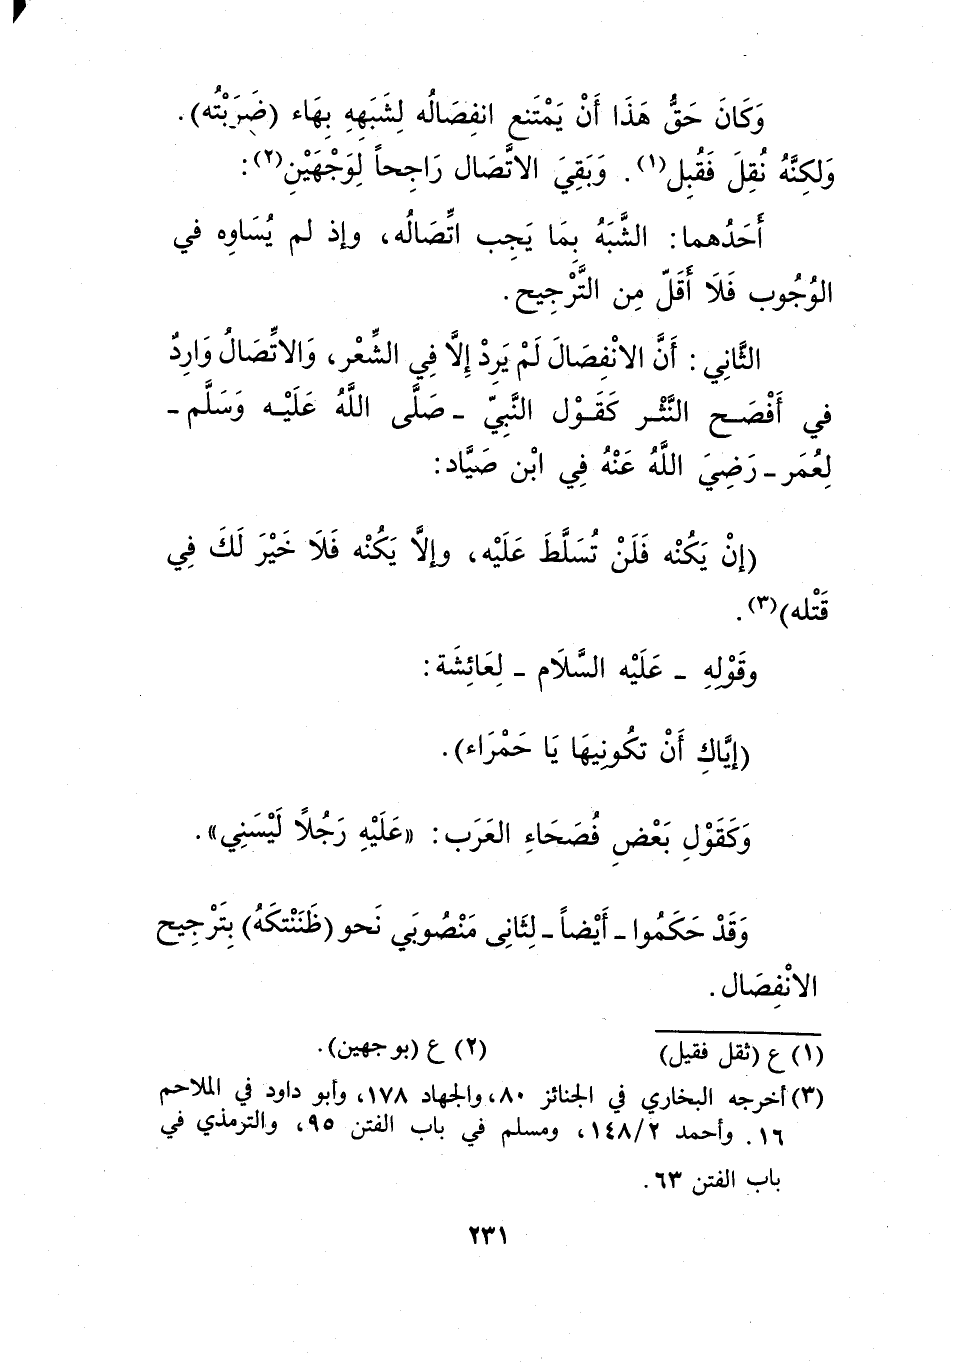 وَكَانَ حَقُّ هَذَا أَنْ يَمْتَنع انفِصَالُه لِشَبَههِ بِهَاء (ضَرَبْتُه).
وَلكِنَّهُ نُقِلَ فَقُبِل(١). وَبَقِيَ الاتَّصَال رَاجِحاً لِوَجْهَيْنِ(٢):
أَحَدُهما: الشَّبَهُ بِمَا يَجِب اتِّصَالُه، وإذ لم يُسَاوِه في
الوُجُوب فَلَا أَقَلّ مِن التَّرْجِيح.
الثَّانِي: أَنَّ الانْفِصَالَ لَمْ يَرِدْ إِلَّا فِي الشِّعْر، وَالاتِّصَالُ وَارِدٌ
في أَفْصَح النَّثْر كَقَوْل النَّبِيّ - صَلَّى اللَّهُ عَلَيْه وَسَلَّم -
لِعُمَر - رَضِيَ اللَّهُ عَنْهُ فِي ابْن صَيَّاد:
(إنْ يَكُنْه فَلَنْ تُسَلَّطَ عَلَيْه، وإلَّا يَكُنْه فَلَا خَيْرَ لَكَ فِي
قَتْله)(٣).
وقَوْلِهِ - عَلَيْه السَّلَام - لِعَائِشَة:
(إيَّاكِ أَنْ تكُونِيهَا يَا حَمْرَاء).
وَكَقَوْلِ بَعْضِ فُصَحَاءِ العَرَب: «عَلَيْهِ رَجُلًا لَيْسَنِي».
وَقَدْ حَكَمُوا - أَيْضاً - لِثَانِى مَنْصُوبَي نَحو (ظَنَنْتكَهُ) بِتَرْجِيح
الانْفِصَال.
(١) ع (ثقل فقيل) (٢) ع (بوجهين).
(٣) أخرجه البخاري في الجنائز ٨٠، والجهاد ١٧٨، وأبو داود في الملاحم
١٦. وأحمد ١٤٨/٢، ومسلم في باب الفتن ٩٥، والترمذي في
باب الفتن ٦٣.
٢٣١